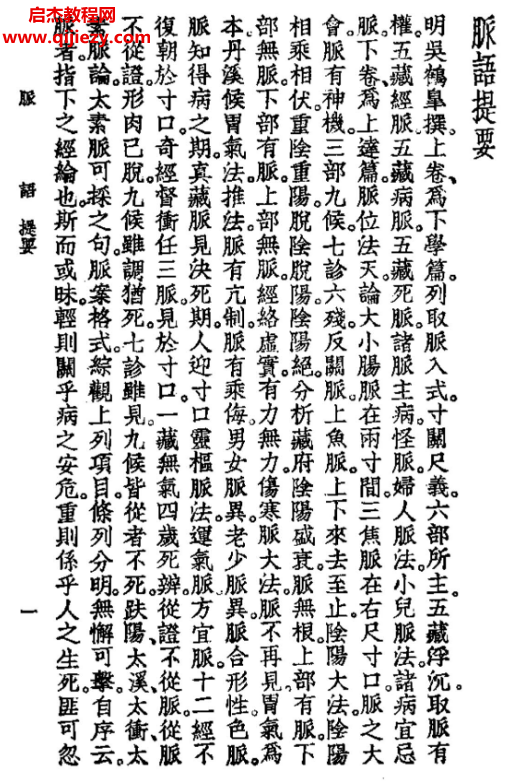 脈語提要
明吳鶴皐撰。上卷、爲下學篇。列取脈入式。寸關尺義。六部所主。五藏浮沉。取脈有
權。五藏經脈。五藏病脈。五藏死脈。諸脈主病。怪脈。婦人脈法。小兒脈法。諸病宜忌
脈。下卷、爲上達篇。脈位法天。論大小腸脈。在兩寸間。三焦脈在右尺寸口。脈之大
會。脈有神機。三部九候。七診六殘。反關脈。上魚脈。上下來去至止。陰陽大法。陰陽
相乘相伏。重陰重陽。脫陰脫陽。陰陽絕。分析藏府陰陽盛衰。脈無根。上部有脈。下
部無脈。下部有脈。上部無脈。經絡虛實。有力無力。傷寒脈大法。脈不再見。胃氣爲
本。丹溪候胃氣法。推法。脈有亢制。脈有乘侮。男女脈異。老少脈異。脈合形性色脈。
脈知得病之期。真藏脈見決死期。人迎寸口。靈樞脈法。運氣脈。方宜脈。十二經不
復朝於寸口。奇經督衝任三脈。見於寸口。一藏無氣四歲死辨。從證不從脈。從脈
不從證。形肉已脫。九候雖調猶死。七診雖見。九候皆從者不死。趺陽、太溪、太衝、太
素脈論。太素脈可採之句。脈案格式。綜觀上列項目。條列分明。無懈可擊。自序云。
脈者。指下之經綸也。斯而或昧。輕則關乎病之安危。重則係乎人之生死。匪可忽
脈語提要
一
启杰教程网
www.qjiezy.cn